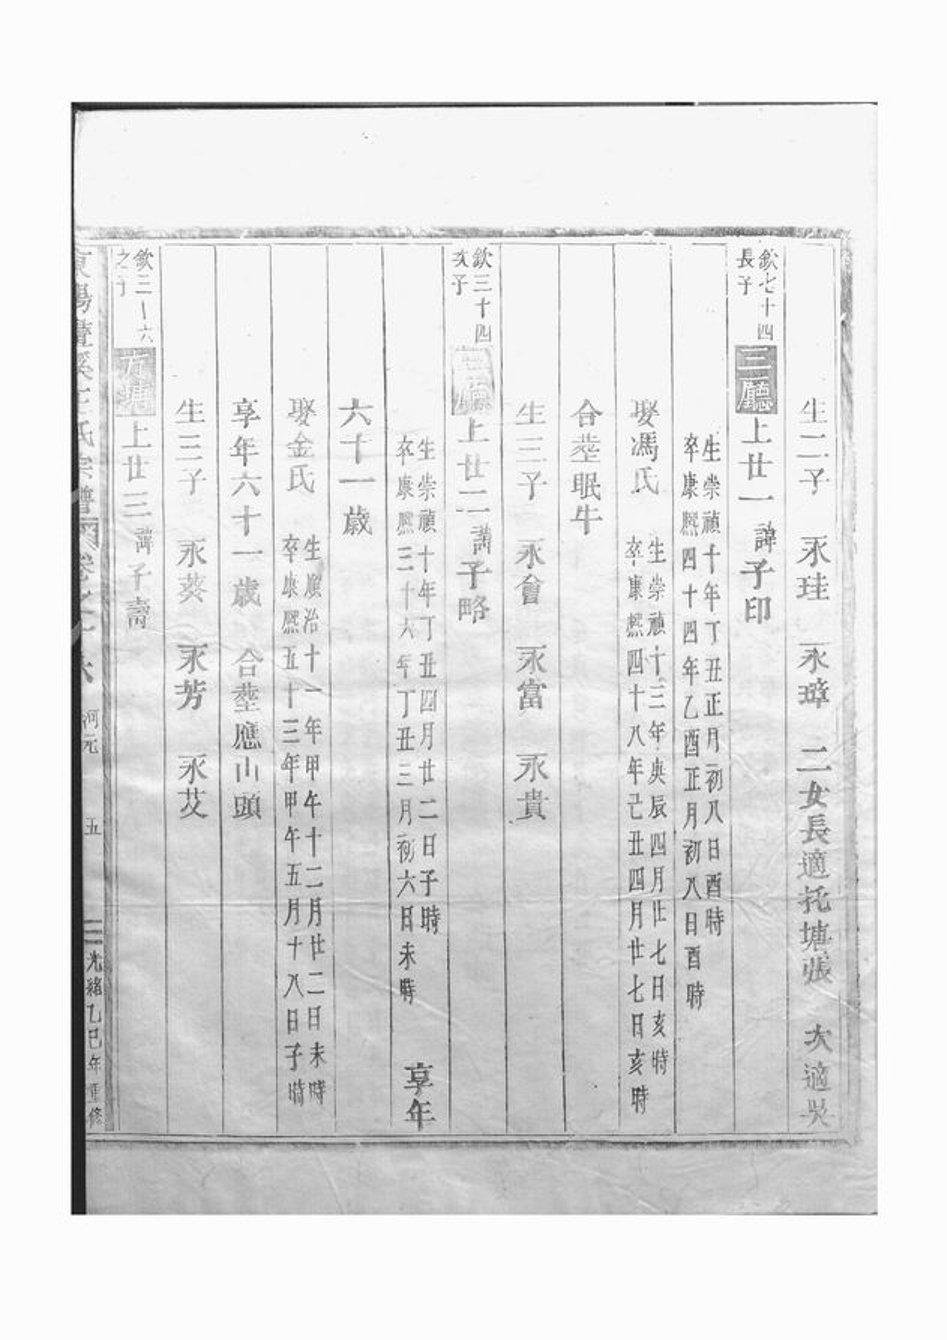 生二子　永珪　永璋　二女長適托塘張　次適吳
欽七十四
長子
三廳上廿一諱子印
生崇禎十年丁丑正月初八日酉時
卒康熙四十四年乙酉正月初八日酉時
娶馮氏
生崇禎十三年庚辰四月廿七日亥時
卒康熙四十八年己丑四月廿七日亥時
合塟眠牛
生三子　永會　永富　永貴
欽三十四
次子
上廿二諱子略
生崇禎十年丁丑四月廿二日子時
卒康熙三十六年丁丑三月初六日未時
享年
六十一歲
娶金氏
生順治十一年甲午十二月廿二日未時
卒康熙五十三年甲午五月十八日子時
享年六十一歲　合塟應山頭
生三子　永葵　永芳　永芟
欽三
六
之子
方塘上廿三諱子壽
王氏宗譜
河元
五
光緒乙巳年重修